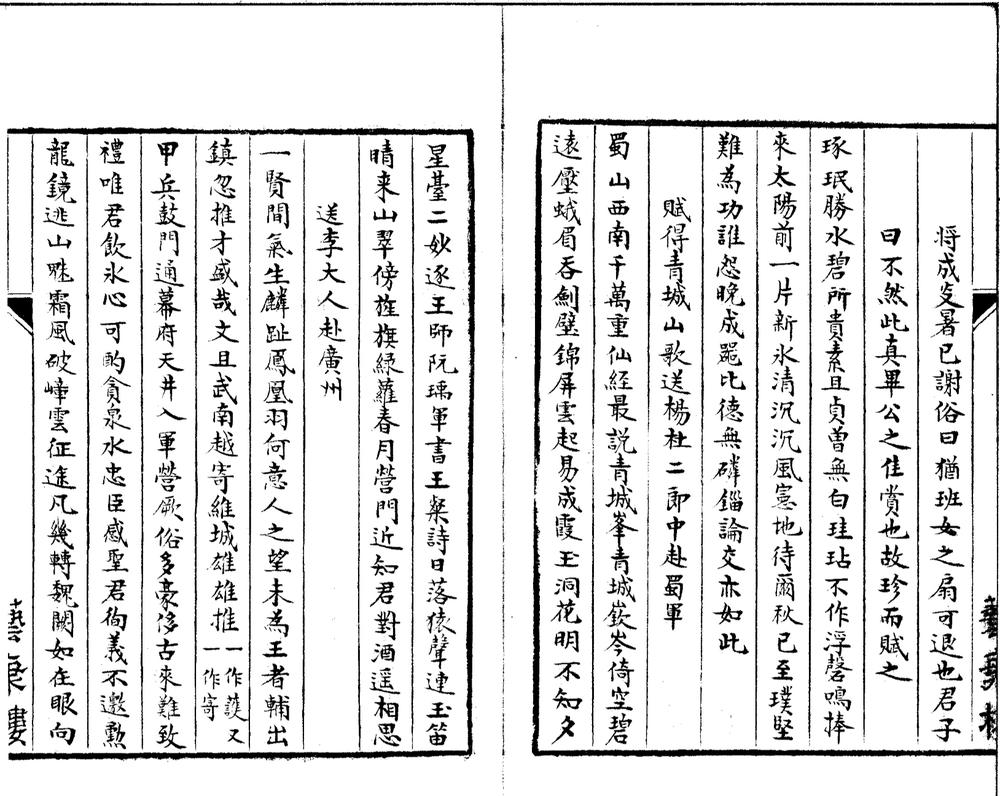 將成炎暑已謝俗曰猶班女之扇可退也君子
曰不然此真畢公之佳賞也故珍而賦之
琢珉勝水碧所貴素且貞曽無白珪玷不作浮磬鳴捧
來太陽前一片新氷清沉沉風憲地待爾秋已至璞堅
難為功誰怨晚成噐比德無磷錙論交亦如此
賦得青城山歌送楊杜二郎中赴蜀軍
蜀山西南千萬重仙経最説青城峯青城嶔岑倚空碧
逺壓蛾眉吞劍壁錦屏雲起易成霞玉洞花明不知夕
星䑓二妙逐王師阮瑀軍書王粲詩日落猿聲連玉笛
晴来山翠傍旌旗緑蘿春月營門近知君對酒遥相思
送李大人赴廣州
一賢間氣生麟趾鳳凰羽何意人之望未為王者輔出
鎮忽推才盛哉文且武南越寄維城雄雄推一作護又一作寄
甲兵鼓門通幕府天井入軍營厥俗多豪侈古來難致
禮唯君飲氷心可酌貪泉水忠臣感聖君徇義不邀勲
龍鏡逃山魅霜風破嶂雲征途凡幾轉魏闕如在眼向
藝
樓